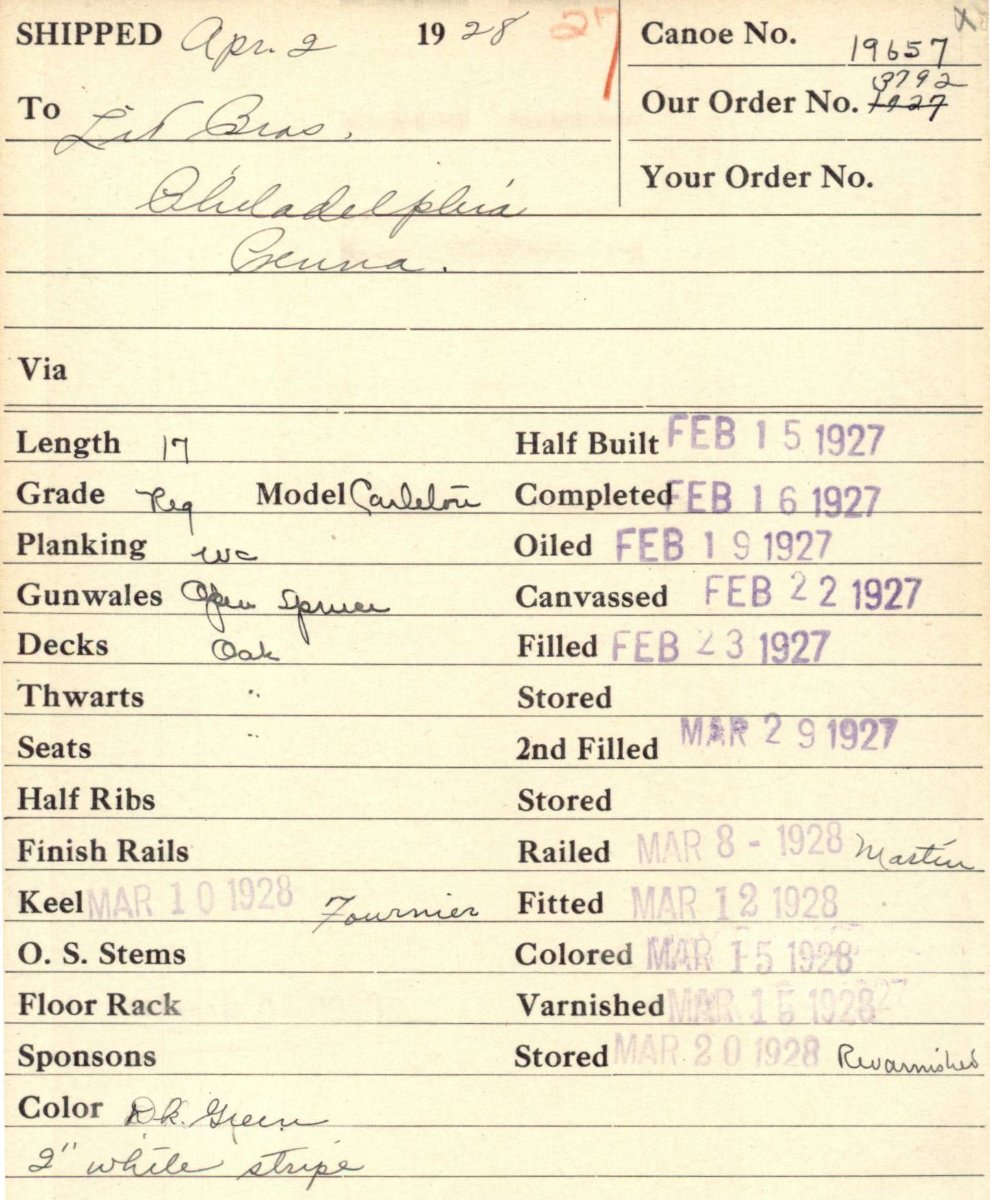 SHIPPED Apr. 2 1928 27
To Lit Bros.
Philadelphia
Penna.
Via
Canoe No. 19657 X
Our Order No. 1927 3792
Your Order No.
Length 17
Grade Reg Model Carleton
Planking WC
Gunwales Open Spruce
Decks Oak
Thwarts "
Seats "
Half Ribs
Finish Rails
Keel MAR 10 1928 Fournier
O. S. Stems
Floor Rack
Sponsons
Color Dk. Green
2" white stripe
Half Built FEB 15 1927
Completed FEB 16 1927
Oiled FEB 19 1927
Canvassed FEB 22 1927
Filled FEB 23 1927
Stored
2nd Filled MAR 29 1927
Stored
Railed MAR 8 - 1928 Martin
Fitted MAR 12 1928
Colored MAR 15 1928
Varnished MAR 15 1928
Stored MAR 20 1928 Revarnished